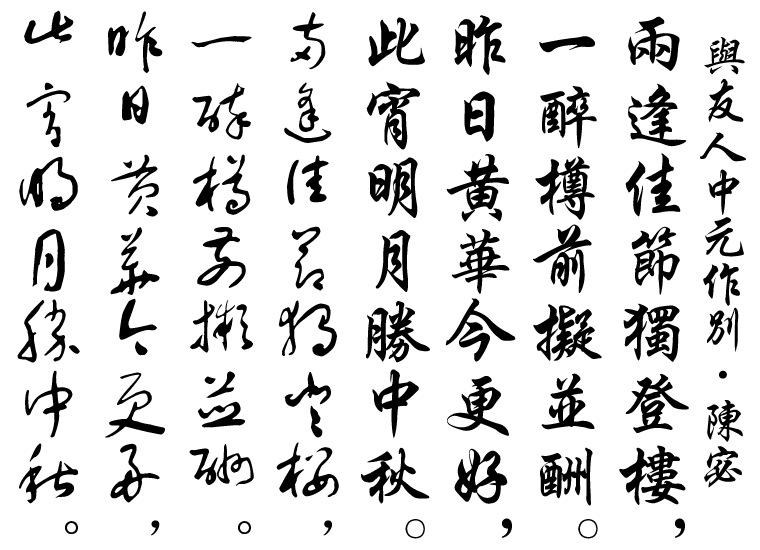 與友人中元作別·陳宓
兩逢佳節獨登樓,
一醉樽前擬並酬。
昨日黃華今更好,
此宵明月勝中秋。
兩逢佳節獨登樓,
一醉樽前擬並酬。
昨日黃華今更好,
此宵明月勝中秋。